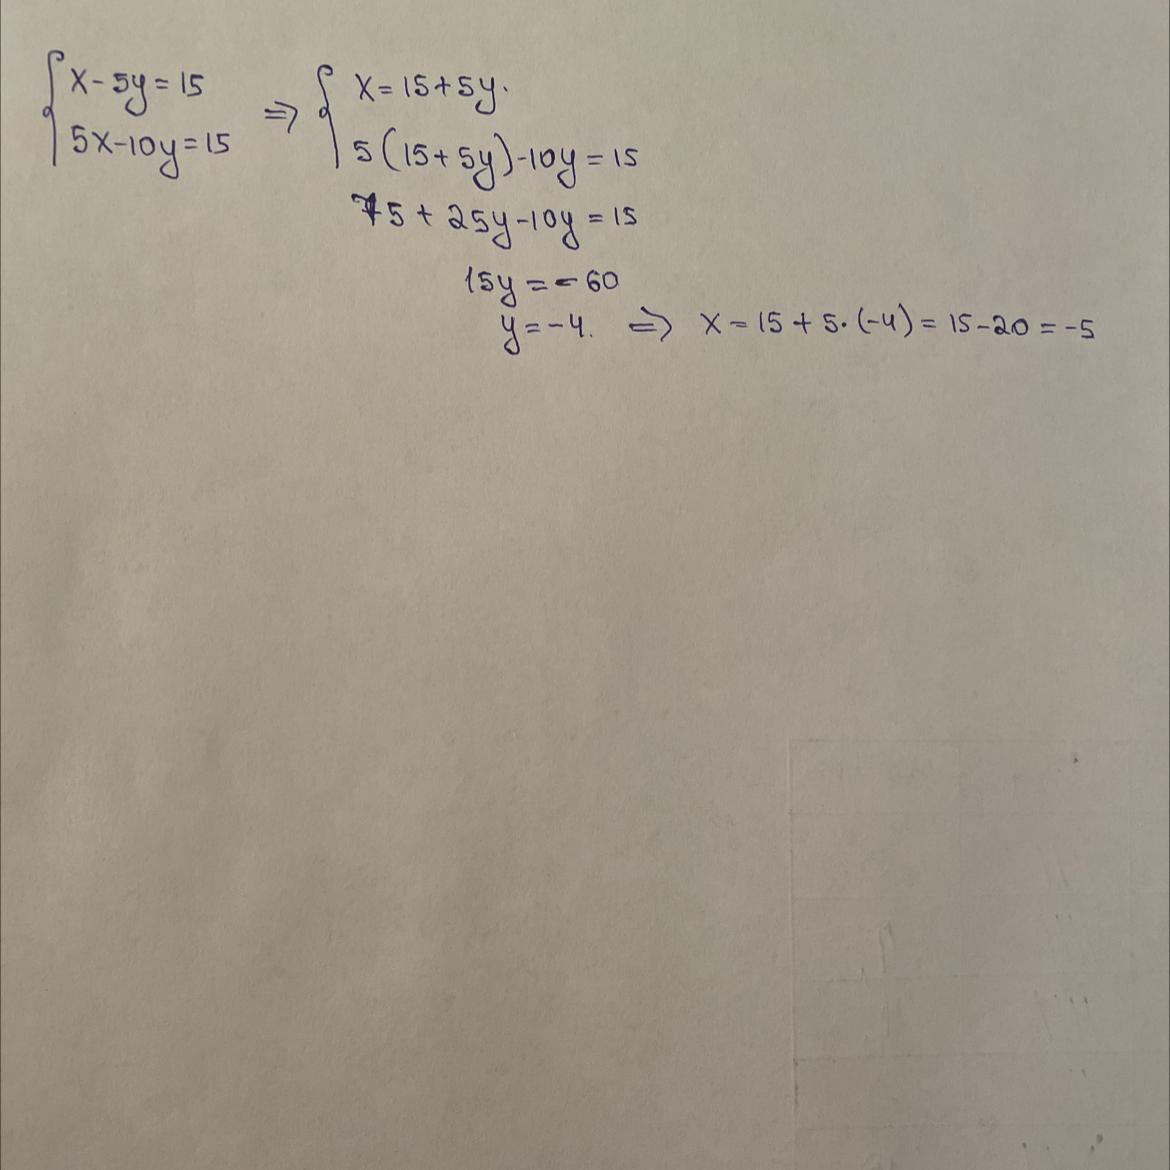 { x - 5y = 15 ⇒ { x = 15 + 5y.
5x - 10y = 15 5(15 + 5y) - 10y = 15
75 + 25y - 10y = 15
15y = - 60
y = -4. ⇒ x = 15 + 5·(-4) = 15 - 20 = -5